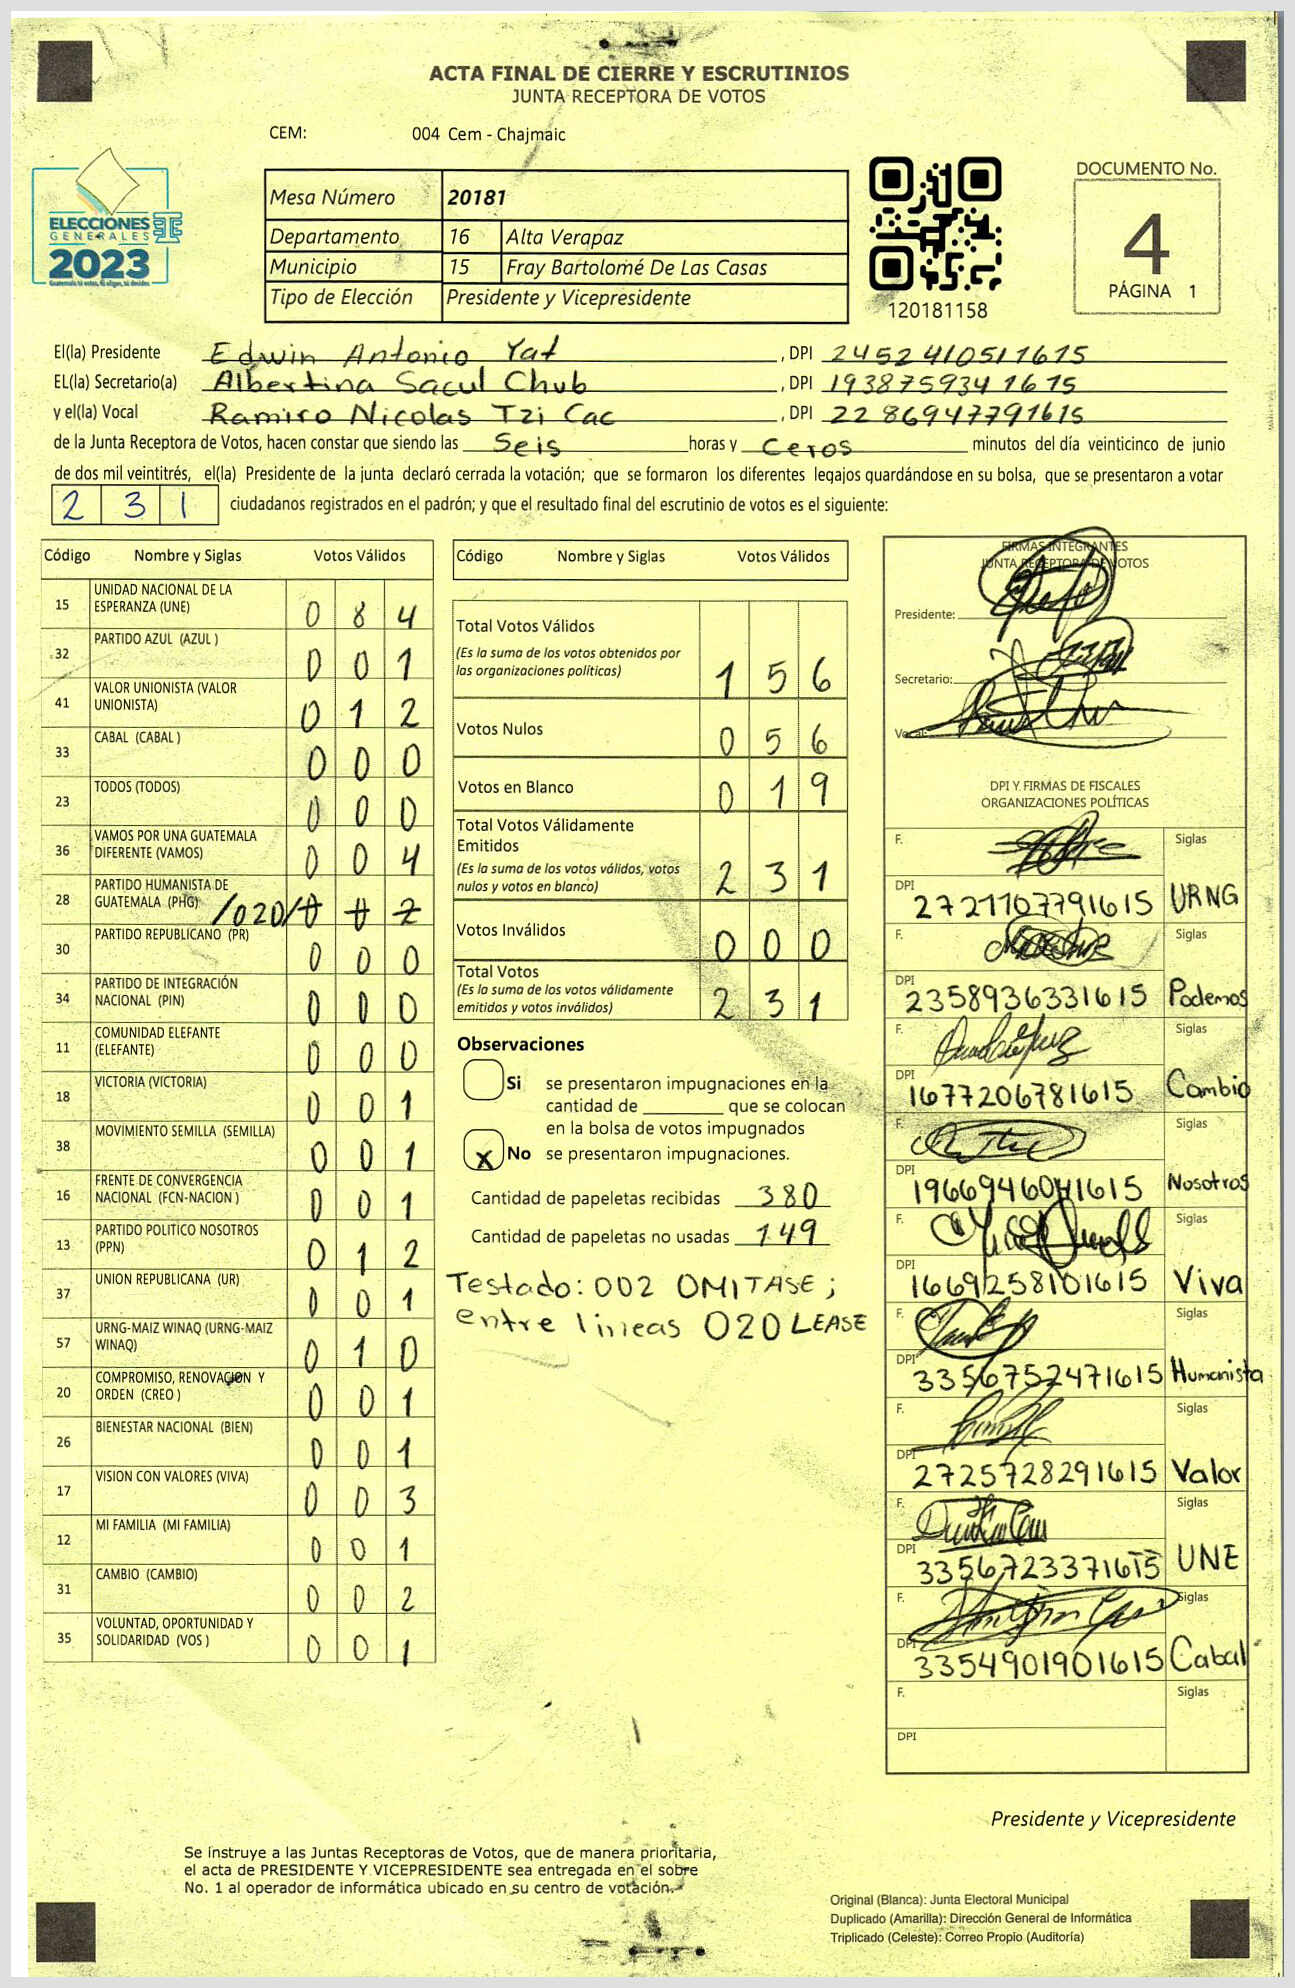 ACTA FINAL DE CIERRE Y ESCRUTINIOS
JUNTA RECEPTORA DE VOTOS
CEM: 004 Cem - Chajmaic
ELECCIONES
GENERALES
2023
Mesa Número 20181
Departamento 16 Alta Verapaz
Municipio 15 Fray Bartolomé De Las Casas
Tipo de Elección Presidente y Vicepresidente
120181158
DOCUMENTO No.
4
PÁGINA 1
El(la) Presidente Edwin Antonio Yat , DPI 2452410511615
EL(la) Secretario(a) Albertina Sacul Chub , DPI 1938759341615
y el(la) Vocal Ramiro Nicolas Tzi Cac , DPI 2286947791615
de la Junta Receptora de Votos, hacen constar que siendo las Seis horas y Ceros minutos del día veinticinco de junio
de dos mil veintitrés, el(la) Presidente de la junta declaró cerrada la votación; que se formaron los diferentes legajos guardándose en su bolsa, que se presentaron a votar
231 ciudadanos registrados en el padrón; y que el resultado final del escrutinio de votos es el siguiente:
Código Nombre y Siglas Votos Válidos
15 UNIDAD NACIONAL DE LA ESPERANZA (UNE) 084
32 PARTIDO AZUL (AZUL ) 001
41 VALOR UNIONISTA (VALOR UNIONISTA) 012
33 CABAL (CABAL ) 000
23 TODOS (TODOS) 000
36 VAMOS POR UNA GUATEMALA DIFERENTE (VAMOS) 004
28 PARTIDO HUMANISTA DE GUATEMALA (PHG) /020/ 002
30 PARTIDO REPUBLICANO (PR) 000
34 PARTIDO DE INTEGRACIÓN NACIONAL (PIN) 000
11 COMUNIDAD ELEFANTE (ELEFANTE) 000
18 VICTORIA (VICTORIA) 001
38 MOVIMIENTO SEMILLA (SEMILLA) 001
16 FRENTE DE CONVERGENCIA NACIONAL (FCN-NACION ) 001
13 PARTIDO POLITICO NOSOTROS (PPN) 012
37 UNION REPUBLICANA (UR) 001
57 URNG-MAIZ WINAQ (URNG-MAIZ WINAQ) 010
20 COMPROMISO, RENOVACION Y ORDEN (CREO ) 001
26 BIENESTAR NACIONAL (BIEN) 001
17 VISION CON VALORES (VIVA) 003
12 MI FAMILIA (MI FAMILIA) 001
31 CAMBIO (CAMBIO) 002
35 VOLUNTAD, OPORTUNIDAD Y SOLIDARIDAD (VOS ) 001
Código Nombre y Siglas Votos Válidos
Total Votos Válidos
(Es la suma de los votos obtenidos por
las organizaciones políticas) 156
Votos Nulos 056
Votos en Blanco 019
Total Votos Válidamente
Emitidos
(Es la suma de los votos válidos, votos
nulos y votos en blanco) 231
Votos Inválidos 000
Total Votos
(Es la suma de los votos válidamente
emitidos y votos inválidos) 231
Observaciones
Si se presentaron impugnaciones en la
cantidad de ________ que se colocan
en la bolsa de votos impugnados
X No se presentaron impugnaciones.
Cantidad de papeletas recibidas 380
Cantidad de papeletas no usadas 149
Testado: 002 OMITASE;
entre lineas 020 LEASE
FIRMAS INTEGRANTES
JUNTA RECEPTORA DE VOTOS
Presidente:
Secretario:
Vocal:
DPI Y FIRMAS DE FISCALES
ORGANIZACIONES POLÍTICAS
F. Siglas
DPI 2721107791615 URNG
F. Siglas
DPI 2358936331615 Podemos
F. Siglas
DPI 1677206781615 Cambio
F. Siglas
DPI 1966946041615 Nosotros
F. Siglas
DPI 1669258101615 Viva
F. Siglas
DPI 3356752471615 Humanista
F. Siglas
DPI 2725728291615 Valor
F. Siglas
DPI 3356723371615 UNE
F. Siglas
DPI 3354901901615 Cabal
F. Siglas
DPI
Presidente y Vicepresidente
Se instruye a las Juntas Receptoras de Votos, que de manera prioritaria,
el acta de PRESIDENTE Y VICEPRESIDENTE sea entregada en el sobre
No. 1 al operador de informática ubicado en su centro de votación.
Original (Blanca): Junta Electoral Municipal
Duplicado (Amarilla): Dirección General de Informática
Triplicado (Celeste): Correo Propio (Auditoría)